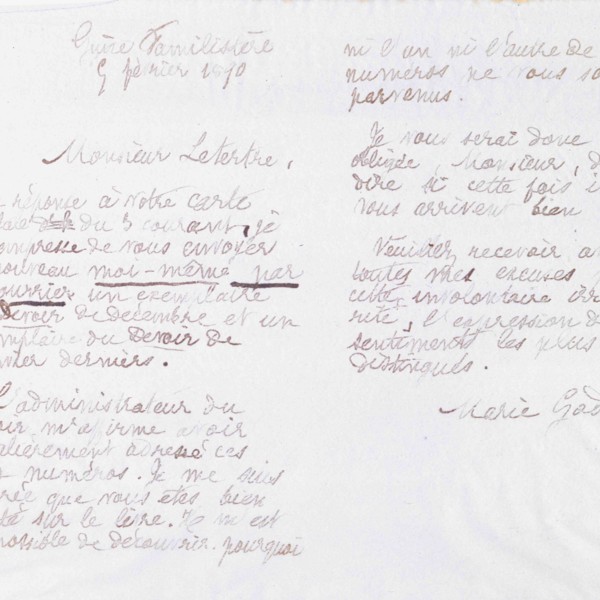 Guise Familistère
9 février 1890
Monsieur Letertre,
réponse à votre carte
tale du 3 courant, je
empresse de vous envoyer
nouveau moi-même par
courrier un exemplaire
Devoir de décembre et un
emplaire du Devoir de
vier derniers.
L'administrateur du
oir m'affirme avoir
ulièrement adressé ces
numéros. Je me suis
rée que vous êtes bien
té sur le livre. Il m'est
possible de découvrir pourquoi
ni l'un ni l'autre de
numéros ne vous so
parvenus.
Je vous serai donc
obligée, Monsieur, d
dire si cette fois i
vous arrivent bien
Veuillez recevoir a
toutes mes excuses
cette involontaire irr
rité, l'expression d
sentiments les plus
distingués.
Marie God